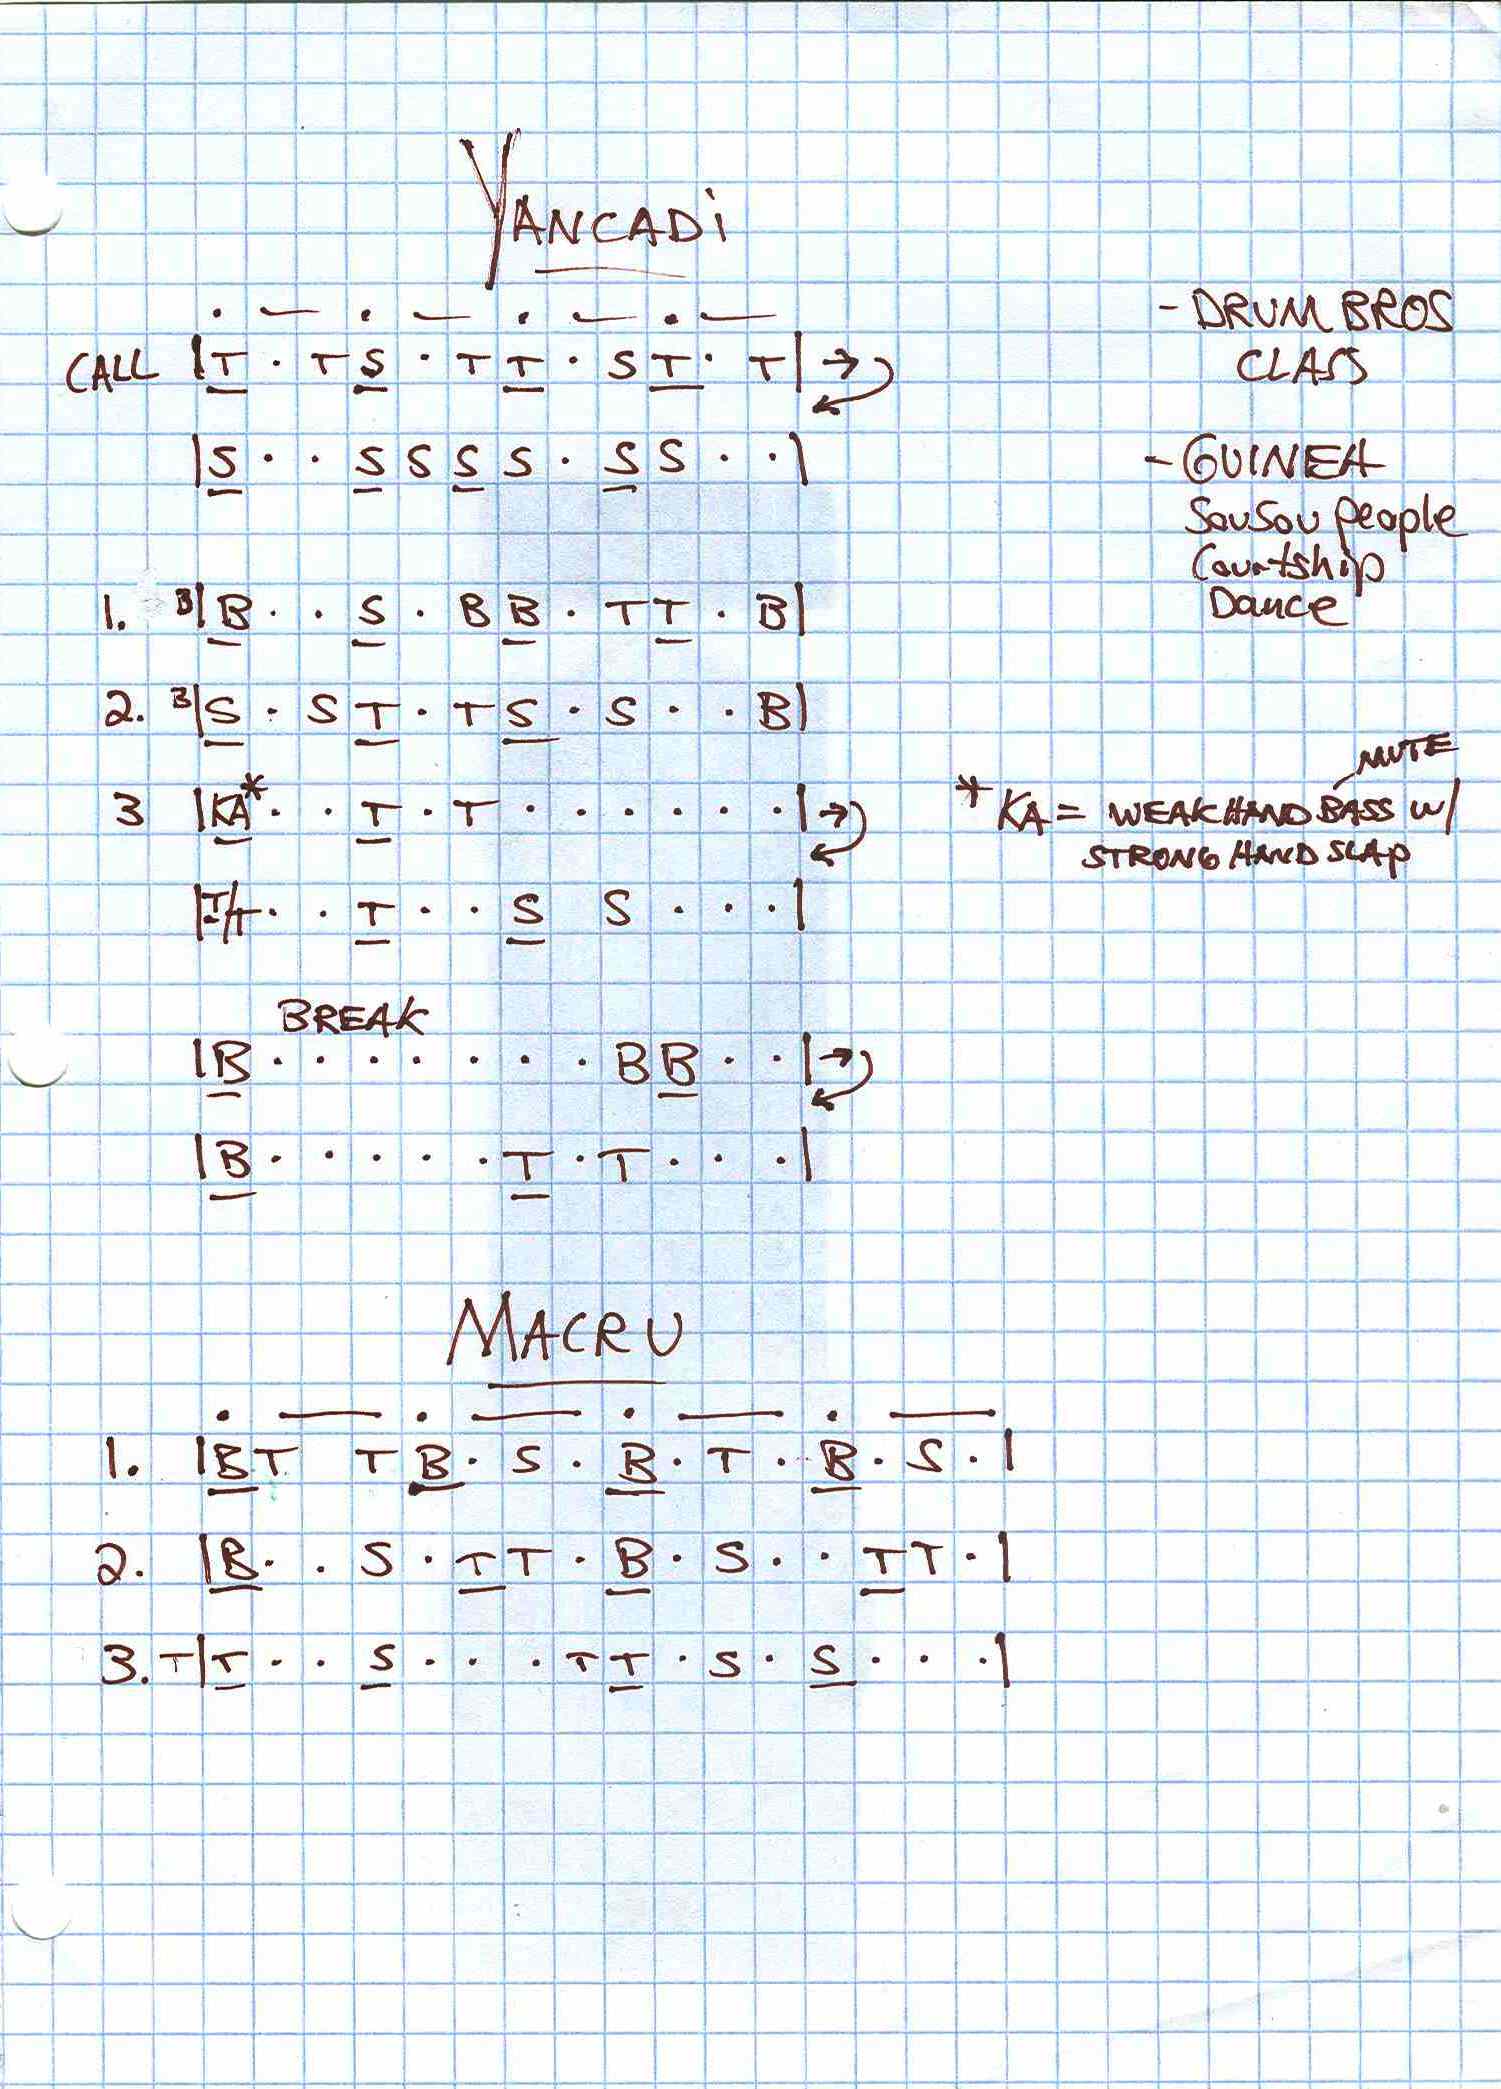 YANCADi
· — · — · — · —
CALL |T · T S · T T · S T · T| →
- DRUM BROS
CLASS
|S · · S S S S · S S · ·|
- GUINEA
SouSou People
Courtship
Dance
1. B|B · · S · B B · T T · B|
2. B|S · S T · T S · S · · B|
3 |KA* · · T · T · · · · · ·| →
MUTE
* KA = WEAK HAND BASS w/
STRONG HAND SLAP
|T/T · · T · · S S · · ·|
BREAK
|B · · · · · · · B B · ·| →
|B · · · · · T · T · · ·|
MACRU
· — · — · — · —
1. |B T T B · S · B · T · B · S ·|
2. |B · · S · T T · B · S · · T T ·|
3. T|T · · S · · · T T · S · S · · ·|